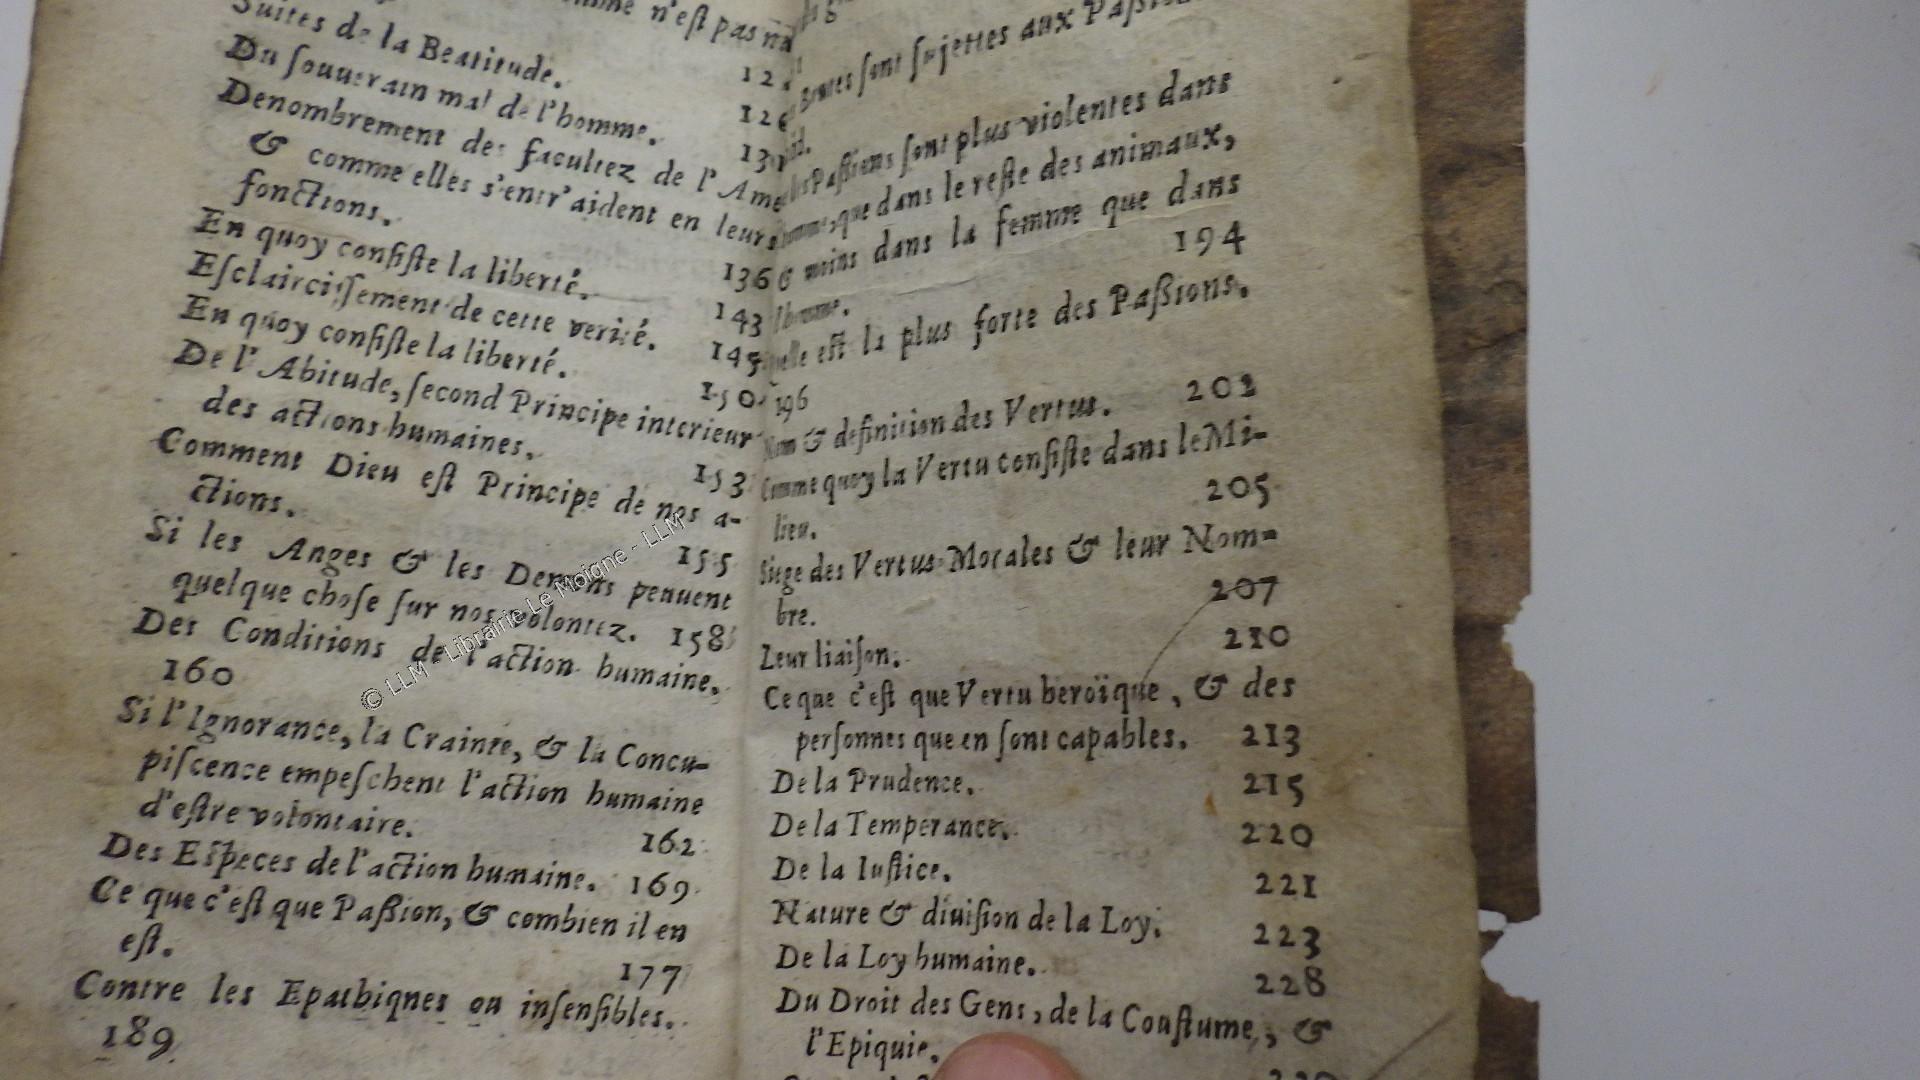 n'eſt pas
Suites de la Beatitude.
12
Du ſouuerain mal de l'homme.
126
Denombrement des facultez de l'Ame
13
& comme elles s'entr'aident en leurs
fonctions.
136
En quoy conſiſte la liberté.
143
Eſclairciſſement de cette verité.
145
En quoy conſiſte la liberté.
150.
De l'Abitude, ſecond Principe interieur
des actions humaines.
153
Comment Dieu eſt Principe de nos a-
ctions.
155
Si les Anges & les Demons peuuent
quelque choſe ſur nos volontez. 158
Des Conditions de l'action humaine.
160
Si l'Ignorance, la Crainte, & la Concu-
piſcence empeſchent l'action humaine
d'eſtre volontaire.
162
Des Eſpeces de l'action humaine. 169
Ce que c'eſt que Paſsion, & combien il en
eſt.
177
Contre les Epathiques ou inſenſibles.
189
Brutes ſont ſujettes aux
Paſsions ſont plus violentes dans
que dans le reſte des animaux,
& moins dans la femme que dans
l'homme.
194
eſt la plus forte des Paſsions.
196
Nom & definition des Vertus. 202
Comme quoy la Vertu conſiſte dans le Mi-
lieu.
205
Siege des Vertus Morales & leur Nom-
bre.
207
Leur liaiſon.
210
Ce que c'eſt que Vertu heroïque, & des
perſonnes que en ſont capables. 213
De la Prudence. 215
De la Temperance. 220
De la Iuſtice. 221
Nature & diuiſion de la Loy. 223
De la Loy humaine. 228
Du Droit des Gens, de la Couſtume, &
l'Epiquie.
© LLM - Librairie Le Moigne - LLM